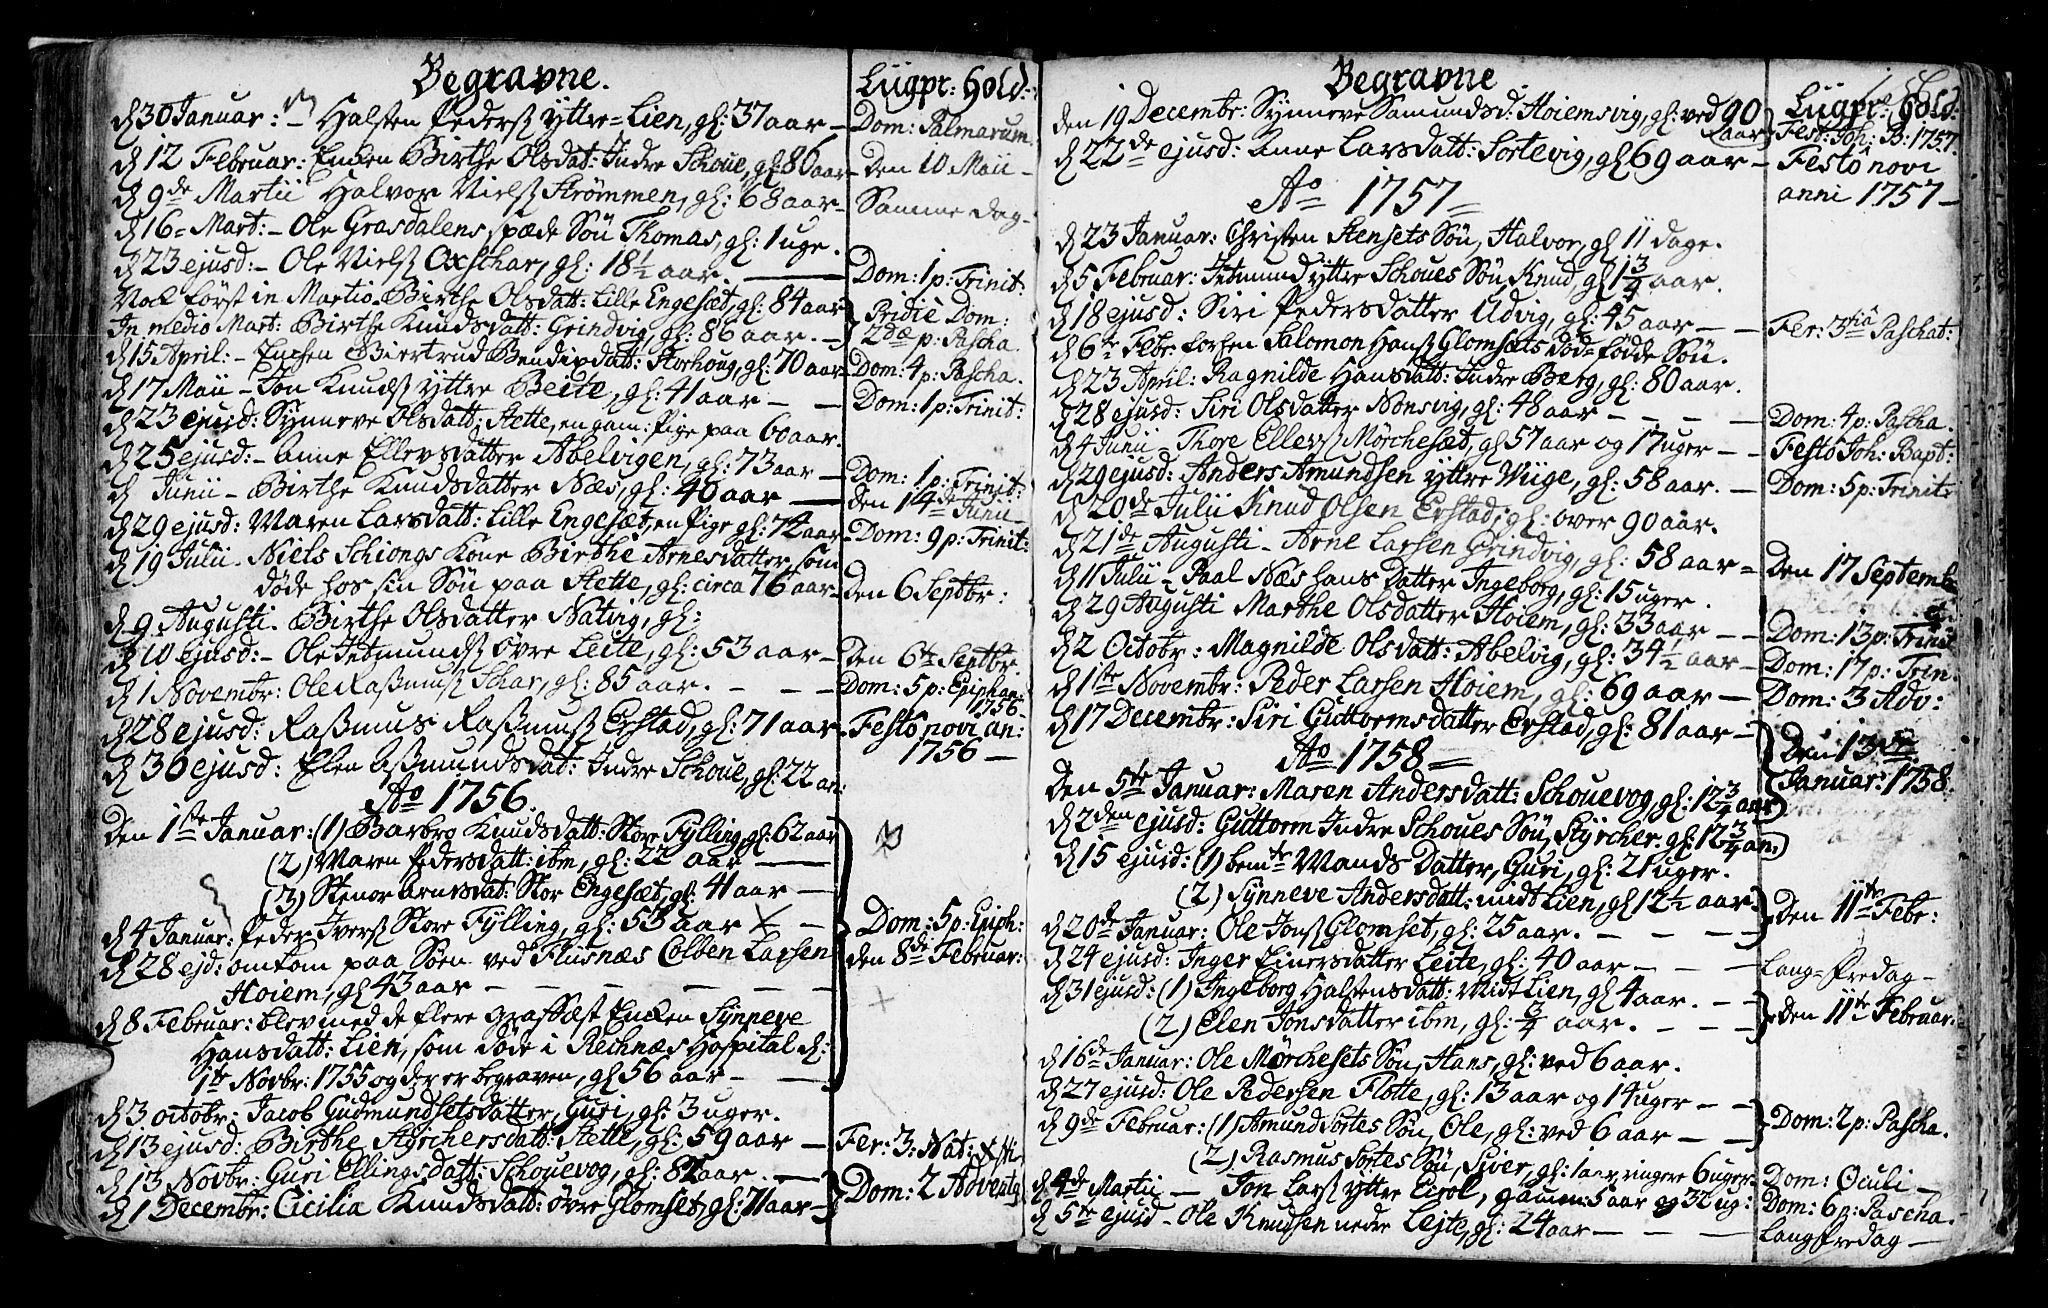 Begravne. Liigpr: hold:
d 30 Januar: Halsten Peders yttre=Lien, gl: 37 aar — Dom: Palmarum.
d 12 Februar: Enken Birthe Olsdat: Indre Schoue, gl: 86 aar — Den 10 Maii —
d 9de Martii Halvor Niels Strømmen, gl: 68 aar — Samme dag —
d 16 Mart: — Ole Græsdalens spæde Søn Thomas, gl: 1 uge.
d 23 ejusd: — Ole Niels Oxschar, gl: 18 1/2 aar — Dom: 1 p: Trinit:
först in Martio. Birthe Olsdatt: Lille Engesæt, gl: 84 aar } Pridie Dom:
In medio Mart: Birthe Knudsdatt: Grindvig, gl: 86 aar. — } 2dæ p: Pascha
d 15 April: — Enchen Giertrud Bendixdatt: Storhoug, gl: 70 aar — Dom: 4 p: Pascha.
d 17 Maii — Jon Knuds yttre Beite, gl: 41 aar — — Dom: 1 p: Trinit:
d 23 ejusd: Synneve Olsdatt: Stette, en gam: Pige paa 60 aar.
d 25 ejusd: — Anne Ellevsdatter Abelvigen, gl: 73 aar — Dom: 1 p: Trinit:
d Junii — Birthe Knudsdatter Næs, gl: 40 aar — den 14de Junii —
d 29 ejusd: Maren Larsdatt: Lille Engesæt, en Pige gl: 72 aar — Dom: 9 p: Trinit:
d 19 Julii. Niels Schiongs Kone Birthe Arnesdatter, som
døde hos sin Søn paa Stette, gl: circa 76 aar — Den 6 Septbr:
d 9 Augusti. Birthe Olsdatter Natvig, gl:
d 10 ejusd: — Ole Jetmunds øvre Leite, gl: 53 aar — Den 6te Septbr:
d 1 Novembr: Ole Rasmus Schar, gl: 85 aar. — — — Dom: 5 p: Epiphan: 1756 —
d 28 ejusd: Rasmus Rasmus Erstad, gl: 71 aar — Festo novi an:
d 30 ejusd: Elen Asmundsdat: Indre Schoue, gl: 22 an: 1756 —
Ao 1756.
Den 1ste Januar: (1) Barbro Knudsdatt: Store Fylling, gl: 62 aar
(2) Maren Pedersdatt: ibm, gl: 22 aar —
(3) Stenor Arnesdat: Stor Engesæt, gl: 41 aar —
d 4 Januar: Peder Ivers Store Fylling, gl: 53 aar X — Dom: 5 p: Epiph:
d 28 ejd: omkom paa Søen ved Flusnæs Colben Larsen den 8de Februar:
Hoiem, gl 43 aar — — — — — —
d 8 Februar: blev med de flere græsfæst Enken Synneve
Hansdatt: Lien, som døde i Rechnæs Hospital d:
1te Novbr: 1755 og der er begraven, gl 56 aar — —
d 3 octobr: Jacob Gudmundsetsdatter, Guri, gl: 3 uger.
d 13 ejusd: Birthe Styrchersdatt: Stette, gl: 59 aar — Fer: 3: Nat: X
d 13 Novbr: Guri Ellingsdatt: Schouevog, gl: 82 aar. } Dom: 2 Advent
d 1 Decembr: Cicilia Knudsdatt: øvre Glomset, gl: 71 aar — }
Begravne Liigpr: hold:
den 19 Decembr: Synneve Samundsd: Hoiemsvig, gl: ved 90 aar } Fest: Joh: B: 1757.
d 22de ejusd: Anne Larsdatt: Sortevig, gl 69 aar — Festo novi
Ao 1757 anni 1757 —
d 23 Januar: Christen Stensets Søn, Halvor, gl 11 dage.
d 5 Februar: Jetmund yttre Schoues Søn Knud, gl 1 3/4 aar.
d 18 ejusd: Siri Pedersdatter Udvig, gl: 45 aar — — Fer: 3tia Paschat:
d 6te Febr: forhen Salomon Hans Glomsæts død=fødde Søn.
d 23 April: Ragnilde Hansdatt: Indre Berg, gl: 80 aar.
d 28 ejusd: Siri Olsdatter Nonsvig, gl: 48 aar — — — Dom: 4 p: Pascha.
d 4 Junii — Thore Ellevs Mörchesæt, gl 57 aar og 17 uger — — Festo Joh: Bapt:
d 29 ejusd: Anders Amundsen yttre Wiige, gl: 58 aar. — Dom: 5 p: Trinit:
d 20de Julii Knud Olsen Erstad, gl: over 90 aar.
d 21de Augusti — Arne Larsen Grindvig, gl: 58 aar = Den 17 Septemb
d 11 Julii — Paal Næs hans Datter Ingeborg, gl: 15 uger.
d 29 Augusti Marthe Olsdatter Hoiem, gl: 33 aar — — Dom: 13 p: Trinit
d 2 Octobr: Magnilde Olsdatt: Abelvig, gl: 34 1/2 aar — Dom: 17 p: Trin
d 1ste Novembr: Peder Larsen Hoiem, gl: 69 aar — Dom: 3 Adv:
d 17 Decembr: Siri Guttormsdatter Erstad, gl: 81 aar — } Den 13de
Ao 1758 Januar: 1758.
Den 5te Januar: Maren Andersdatt: Schouevog, gl: 12 3/4 aar
d 2den ejusd: Guttorm Indre Schoues Søn, Styrcher. gl: 12 3/4 an:
d 15 ejusd: (1) bemte Mands Datter, Guri, gl: 21 uger.
(2) Synneve Andersdatt: midt Lien, gl 12 1/2 aar. } Den 11te Febr:
d 20de Januar: Ole Jons Glomset, gl: 25 aar. — — — —
d 24 ejusd: Inger Einersdatter Leite, gl: 40 aar — — — Lang=fredag —
d 31 ejusd: (1) Ingeborg Halstensdatt: Midt Lien, gl 4 aar. — — } Den 11te Februar:
(2) Elen Jonsdatter ibm, gl: 3/4 aar. — — —
d 16de Januar: Ole Mörchesets Søn, Hans, gl: ved 6 aar.
d 27 ejusd: Ole Pedersen Flotte, gl: 13 aar og 14 uger — —
d 9de Februar: (1) Amund Sortes Søn, Ole, gl: ved 6 aar — — } Dom: 2 p: Pascha.
(2) Rasmus Sortes Søn, Siver, gl: 1 aar ringere 6 uger — Dom: Oculi —
d 4de Martii — Jon Lars yttre gammen: 5 aar og 32 ug: Dom: 6 p: Pascha.
d 5te ejusd — Ole Knudsen nedre Lejte, gl: 24 aar — — Langfredag —